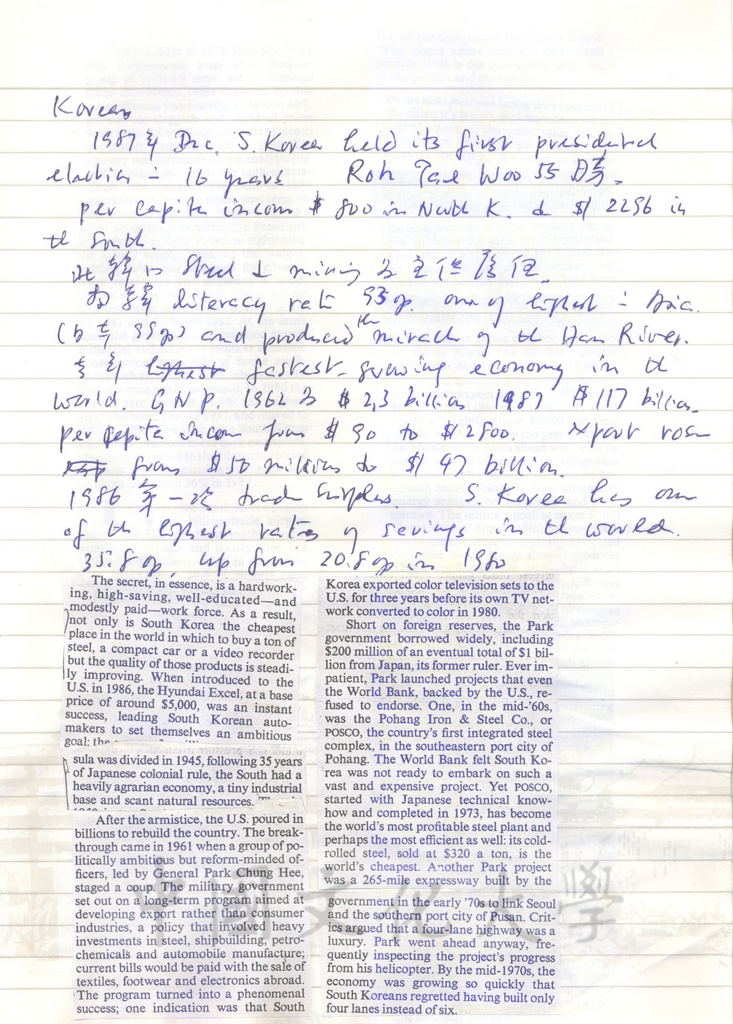 Korean
1987年 Dec. S. Korea held its first presidential
election = 16 years Roh Tae Woo 55
per capita income $ 800 in North K. & $ 2296 in
the South.
Steel & mining
literacy rate one of highest = Asia.
and produced the miracle of the Han River.
highest fastest-growing economy in the
world. G.N.P. 1962 $ 2,3 billion 1987 $ 117 billion.
per capita income from $ 90 to $ 2800. export rose
from $ 50 millions to $ 47 billion.
1986 第一次 trade surplus. S. Korea has one
of the highest rates of savings in the world.
up from in 1980
The secret, in essence, is a hardwork-
ing, high-saving, well-educated—and
modestly paid—work force. As a result,
not only is South Korea the cheapest
place in the world in which to buy a ton of
steel, a compact car or a video recorder
but the quality of those products is steadi-
ly improving. When introduced to the
U.S. in 1986, the Hyundai Excel, at a base
price of around $5,000, was an instant
success, leading South Korean auto-
makers to set themselves an ambitious
goal: the
sula was divided in 1945, following 35 years
of Japanese colonial rule, the South had a
heavily agrarian economy, a tiny industrial
base and scant natural resources.
After the armistice, the U.S. poured in
billions to rebuild the country. The break-
through came in 1961 when a group of po-
litically ambitious but reform-minded of-
ficers, led by General Park Chung Hee,
staged a coup. The military government
set out on a long-term program aimed at
developing export rather than consumer
industries, a policy that involved heavy
investments in steel, shipbuilding, petro-
chemicals and automobile manufacture;
current bills would be paid with the sale of
textiles, footwear and electronics abroad.
The program turned into a phenomenal
success; one indication was that South
Korea exported color television sets to the
U.S. for three years before its own TV net-
work converted to color in 1980.
Short on foreign reserves, the Park
government borrowed widely, including
$200 million of an eventual total of $1 bil-
lion from Japan, its former ruler. Ever im-
patient, Park launched projects that even
the World Bank, backed by the U.S., re-
fused to endorse. One, in the mid-'60s,
was the Pohang Iron & Steel Co., or
POSCO, the country's first integrated steel
complex, in the southeastern port city of
Pohang. The World Bank felt South Ko-
rea was not ready to embark on such a
vast and expensive project. Yet POSCO,
started with Japanese technical know-
how and completed in 1973, has become
the world's most profitable steel plant and
perhaps the most efficient as well: its cold-
rolled steel, sold at $320 a ton, is the
world's cheapest. Another Park project
was a 265-mile expressway built by the
government in the early '70s to link Seoul
and the southern port city of Pusan. Crit-
ics argued that a four-lane highway was a
luxury. Park went ahead anyway, fre-
quently inspecting the project's progress
from his helicopter. By the mid-1970s, the
economy was growing so quickly that
South Koreans regretted having built only
four lanes instead of six.
中國文化大學